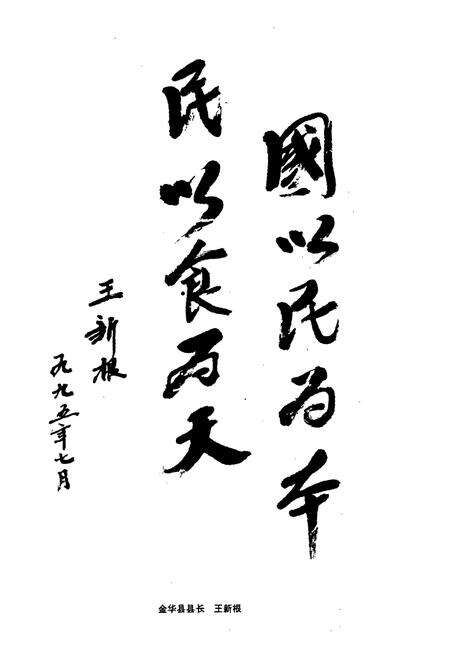 國以民为本
民以食为天
王新根
一九九五年七月
金华县县长 王新根